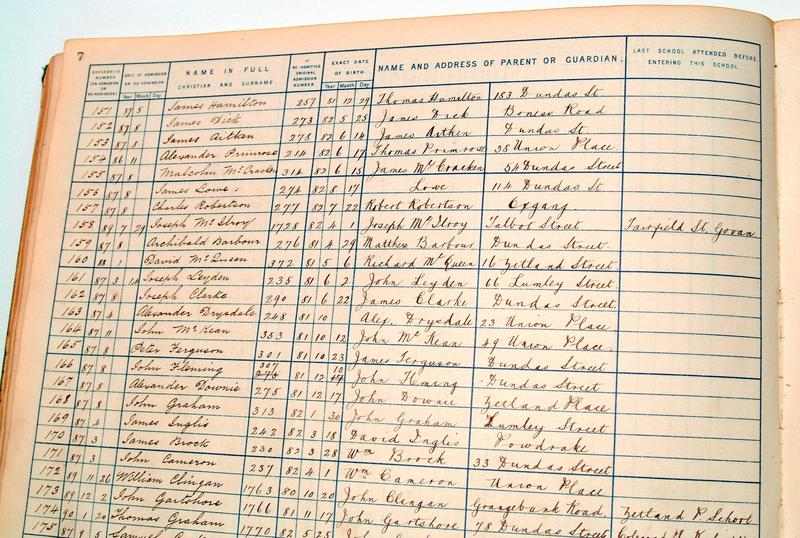 7
SUCCESSIVE NUMBER ON ADMISSION OR RE-ADMISSION DATE OF ADMISSION OR RE-ADMISSION NAME IN FULL CHRISTIAN AND SURNAME. IF RE-ADMITTED ORIGINAL ADMISSION NUMBER EXACT DATE OF BIRTH NAME AND ADDRESS OF PARENT OR GUARDIAN. LAST SCHOOL ATTENDED BEFORE ENTERING THIS SCHOOL
Year Month Day Year Month Day
151 87 5 James Hamilton 257 81 12 29 Thomas Hamilton 183 Dundas St.
152 87 8 James Dick 273 82 5 25 James Dick Boness Road
153 87 8 James Aitken 278 82 6 14 James Aitken Dundas St.
154 86 11 Alexander Primrose 214 82 6 17 Thomas Primrose 38 Union Place
155 87 8 Malcolm McCracken 314 82 6 15 James McCracken 54 Dundas Street
156 87 8 James Lowe 274 82 8 17 Lowe 114 Dundas St
157 87 8 Charles Robertson 277 82 7 22 Robert Robertson Oxgang
158 89 7 29 Joseph McIlroy 1728 82 4 1 Joseph McIlroy Talbot Street Fairfield St. Govan
159 87 8 Archibald Barbour 276 81 4 29 Matthew Barbour Dundas Street.
160 1 David McQueen 372 81 5 6 Richard McQueen 16 Zetland Street.
161 87 3 14 Joseph Leyden 235 81 6 2 John Leyden 66 Lumley Street.
162 87 8 Joseph Clarke 290 81 6 22 James Clarke Dundas Street.
163 87 4 Alexander Drysdale 248 81 10 Alex. Drysdale 23 Union Place
164 87 11 John McKean 353 81 10 12 John McKean 49 Union Place
165 87 8 Peter Ferguson 301 81 10 23 James Ferguson Dundas Street
166 87 8 John Fleming 307 81 12 10 John Fleming Dundas Street
167 87 8 Alexander Downie 275 81 12 17 John Downie Zetland Place
168 87 8 John Graham 313 82 1 30 John Graham Lumley Street
169 87 4 James Inglis 242 82 3 18 David Inglis Powdrake
170 87 3 James Brock 230 82 3 28 Wm Brock 33 Dundas Street
171 87 3 John Cameron 237 82 4 1 Wm Cameron Union Place
172 89 11 26 William Clingan 1763 80 10 20 John Clingan Grangebank Road. Zetland P. School
173 89 12 2 John Gartshore 1766 81 11 17 John Gartshore 78 Dundas Street
174 90 1 20 Thomas Graham 1770 82 5 25 John
175 87 9 5 Samuel